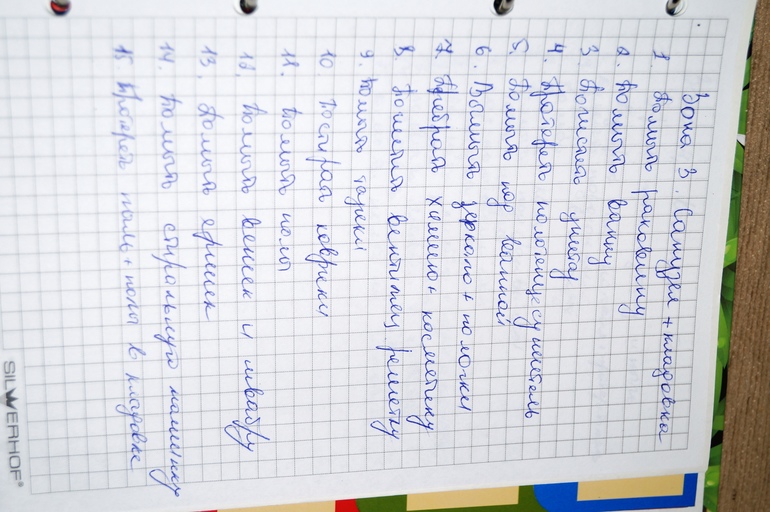 Зона 3. Санузел + кладовка
1 Помыть раковину
2. Помыть ванну
3. Почистить унитаз
4. Протереть полотенцесушитель
5. Помыть под ванной
6. Вымыть зеркало + полочки
7. Прибрать химию + косметику
8. Почистить вентиляц решетку
9. Помыть тазики
10 Постирать коврики
11. Помыть полы
12 Помыть веник и швабру
13. Помыть ёршик
14. Помыть стиральную машинку
15 Протереть пыль + полы в кладовке
SILWERHOF®